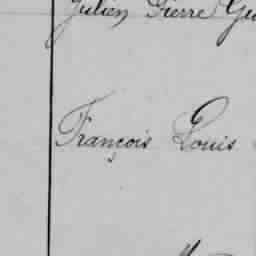 Julien Pierre
François Louis